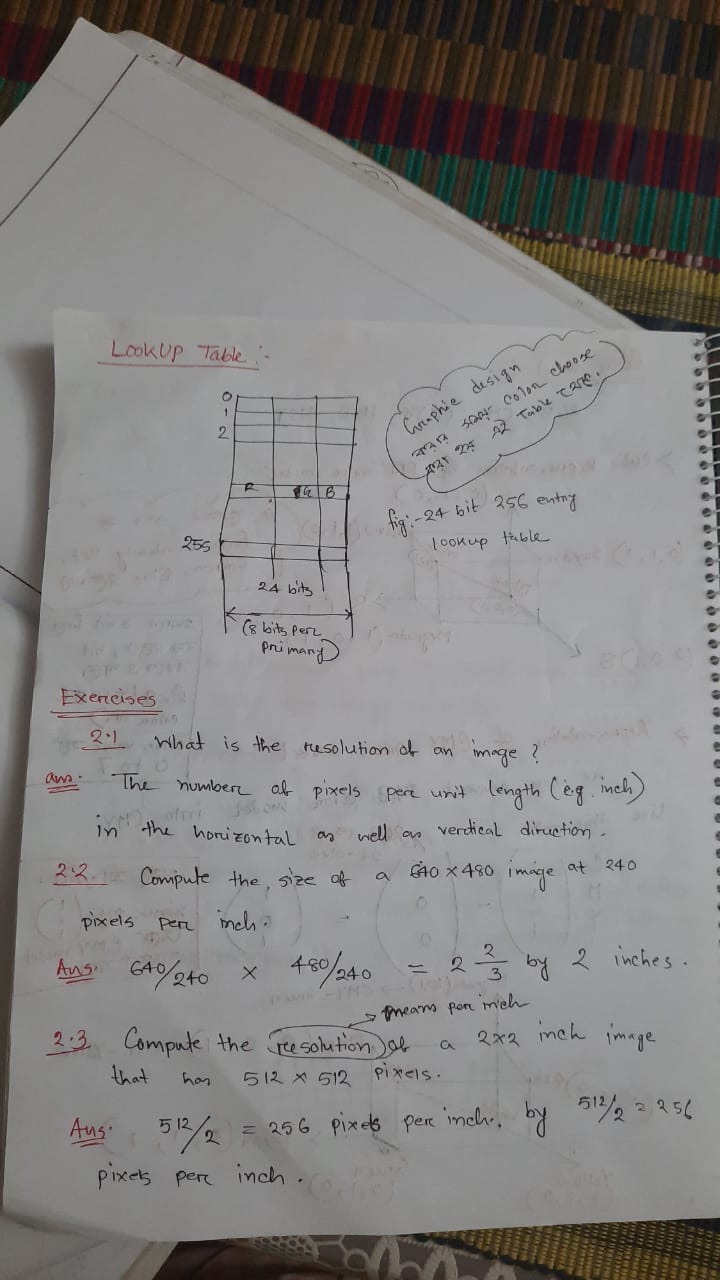 LookUP Table :-
Graphic design
করার সময় color choose
করা হয় এই Table থেকে.
0
1
2
R G B
255
24 bits
(8 bits per
primary)
fig:- 24 bit 256 entry
lookup table
Exercises
2.1 What is the resolution of an image ?
ans. The number of pixels per unit length (eg. inch)
in the horizontal as well as verdical diruction.
2.2. Compute the size of a 640 x 480 image at 240
pixels per inch.
Ans. 640/240 x 480/240 = 2 2/3 by 2 inches.
→ means per inch
2.3 Compute the resolution of a 2x2 inch image
that has 512 x 512 pixels.
Ans. 512/2 = 256 pixels per inch. by 512/2 = 256
pixels per inch.